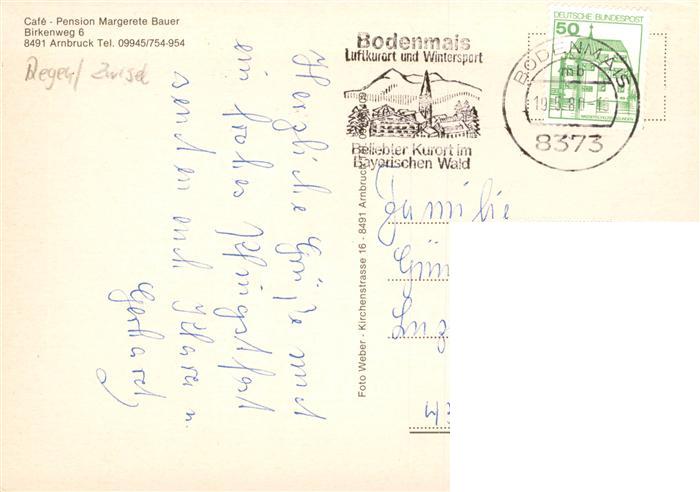 Café - Pension Margerete Bauer
Birkenweg 6
8491 Arnbruck Tel. 09945/754-954
Regen/ Zwisel
Herzliche Grüße und
ein frohes Pfingstfest
senden euch Klara u.
Gerhard
Foto Weber - Kirchenstrasse 16 - 8491 Arnbruck
Bodenmais
Luftkurort und Wintersport
Beliebter Kurort im
Bayerischen Wald
DEUTSCHE BUNDESPOST
50
BODENMAIS
mb
19.5.80-15
8373
Familie
Gün
Luz